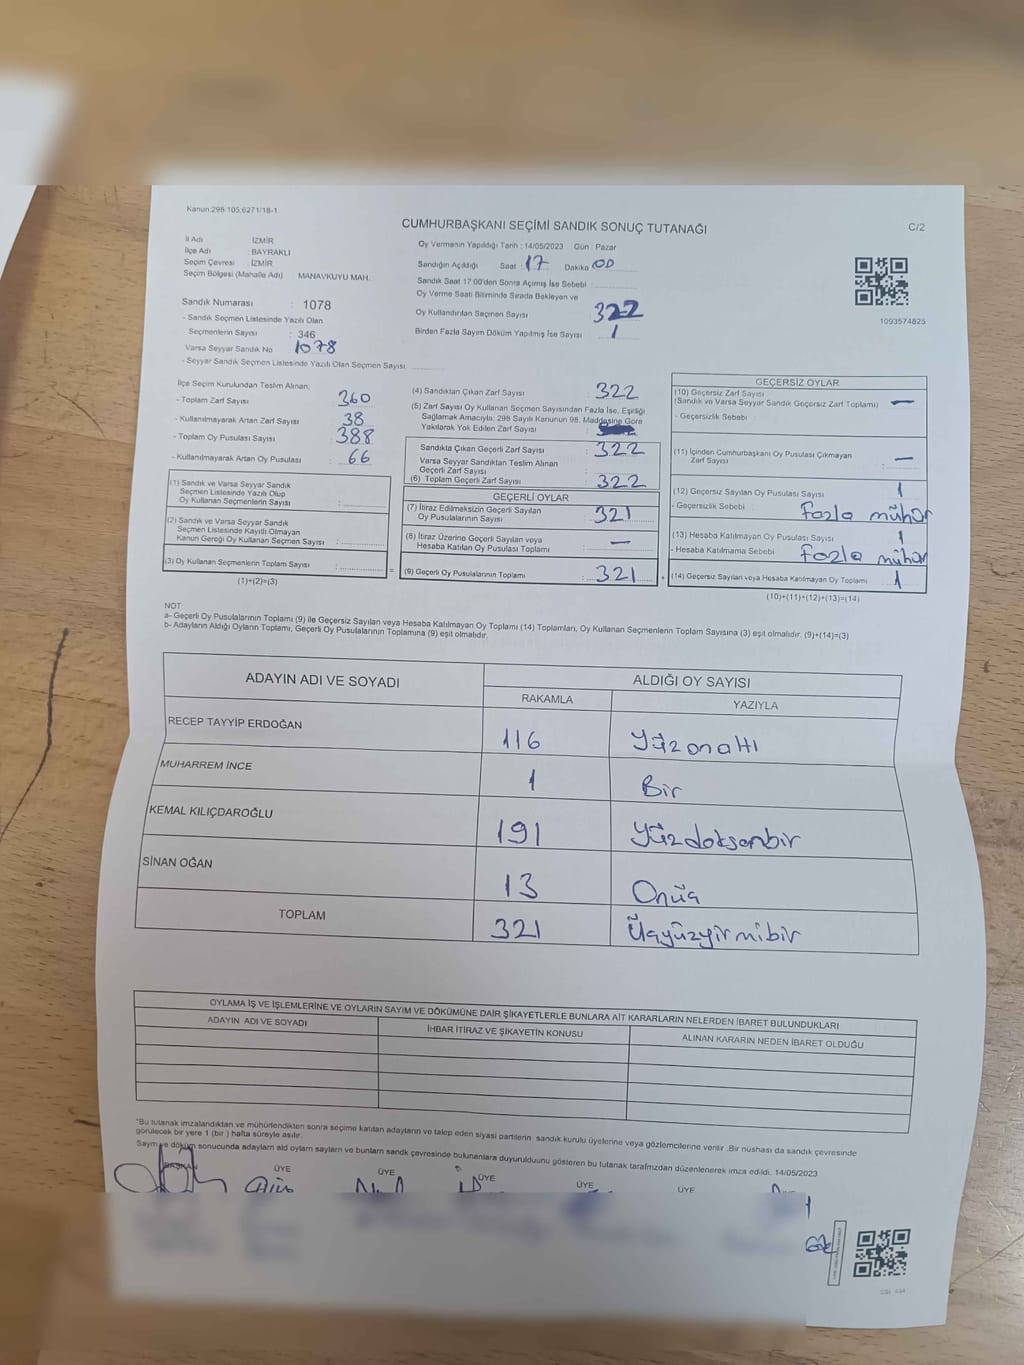 Kanun:298/105,6271/18-1
CUMHURBAŞKANI SEÇİMİ SANDIK SONUÇ TUTANAĞI
C/2
İl Adı : İZMİR
İlçe Adı : BAYRAKLI
Seçim Çevresi : İZMİR
Seçim Bölgesi (Mahalle Adı) MANAVKUYU MAH.
Sandık Numarası : 1078
- Sandık Seçmen Listesinde Yazılı Olan
Seçmenlerin Sayısı : 346
Varsa Seyyar Sandık No 1078
- Seyyar Sandık Seçmen Listesinde Yazılı Olan Seçmen Sayısı:
Oy Vermenin Yapıldığı Tarih : 14/05/2023 Gün : Pazar
Sandığın Açıldığı Saat : 17 Dakika : 00
Sandık Saat 17:00'den Sonra Açılmış İse Sebebi :
Oy Verme Saati Bitiminde Sırada Bekleyen ve
Oy Kullandırılan Seçmen Sayısı 322
Birden Fazla Sayım Döküm Yapılmış İse Sayısı : 1
1093574825
İlçe Seçim Kurulundan Teslim Alınan;
- Toplam Zarf Sayısı : 360
- Kullanılmayarak Artan Zarf Sayısı : 38
- Toplam Oy Pusulası Sayısı : 388
- Kullanılmayarak Artan Oy Pusulası : 66
(1) Sandık ve Varsa Seyyar Sandık
Seçmen Listesinde Yazılı Olup
Oy Kullanan Seçmenlerin Sayısı :
(2) Sandık ve Varsa Seyyar Sandık
Seçmen Listesinde Kayıtlı Olmayan
Kanun Gereği Oy Kullanan Seçmen Sayısı :
(3) Oy Kullanan Seçmenlerin Toplam Sayısı :
(1)+(2)=(3)
=
(4) Sandıktan Çıkan Zarf Sayısı : 322
(5) Zarf Sayısı Oy Kullanan Seçmen Sayısından Fazla İse, Eşitliği
Sağlamak Amacıyla; 298 Sayılı Kanunun 98. Maddesine Göre
Yakılarak Yok Edilen Zarf Sayısı :
Sandıkta Çıkan Geçerli Zarf Sayısı : 322
Varsa Seyyar Sandıktan Teslim Alınan
Geçerli Zarf Sayısı :
(6) Toplam Geçerli Zarf Sayısı : 322
GEÇERLİ OYLAR
(7) İtiraz Edilmeksizin Geçerli Sayılan
Oy Pusulalarının Sayısı : 321
(8) İtiraz Üzerine Geçerli Sayılan veya
Hesaba Katılan Oy Pusulası Toplamı : —
(9) Geçerli Oy Pusulalarının Toplamı : 321
+
GEÇERSİZ OYLAR
(10) Geçersiz Zarf Sayısı
(Sandık ve Varsa Seyyar Sandık Geçersiz Zarf Toplamı) —
- Geçersizlik Sebebi :
(11) İçinden Cumhurbaşkanı Oy Pusulası Çıkmayan
Zarf Sayısı : —
(12) Geçersiz Sayılan Oy Pusulası Sayısı : 1
- Geçersizlik Sebebi : Fazla mühür
(13) Hesaba Katılmayan Oy Pusulası Sayısı : 1
- Hesaba Katılmama Sebebi : Fazla mühür
(14) Geçersiz Sayılan veya Hesaba Katılmayan Oy Toplamı : 1
(10)+(11)+(12)+(13)=(14)
NOT
a- Geçerli Oy Pusulalarının Toplamı (9) ile Geçersiz Sayılan veya Hesaba Katılmayan Oy Toplamı (14) Toplamları, Oy Kullanan Seçmenlerin Toplam Sayısına (3) eşit olmalıdır. (9)+(14)=(3)
b- Adayların Aldığı Oyların Toplamı, Geçerli Oy Pusulalarının Toplamına (9) eşit olmalıdır.
ADAYIN ADI VE SOYADI
ALDIĞI OY SAYISI
RAKAMLA YAZIYLA
RECEP TAYYİP ERDOĞAN 116 Yüzonaltı
MUHARREM İNCE 1 Bir
KEMAL KILIÇDAROĞLU 191 Yüzdoksanbir
SİNAN OĞAN 13 Onüç
TOPLAM 321 Üçyüzyirmibir
OYLAMA İŞ VE İŞLEMLERİNE VE OYLARIN SAYIM VE DÖKÜMÜNE DAİR ŞİKAYETLERLE BUNLARA AİT KARARLARIN NELERDEN İBARET BULUNDUKLARI
ADAYIN ADI VE SOYADI İHBAR İTİRAZ VE ŞİKAYETİN KONUSU ALINAN KARARIN NEDEN İBARET OLDUĞU
*Bu tutanak imzalandıktan ve mühürlendikten sonra seçime katılan adayların ve talep eden siyasi partilerin sandık kurulu üyelerine veya gözlemcilerine verilir. Bir nüshası da sandık çevresinde
görülecek bir yere 1 (bir ) hafta süreyle asılır.
Sayım ve döküm sonucunda adayların ald oyların sayıları ve bunların sandık çevresinde bulunanlara duyurulduunu gösteren bu tutanak tarafmzdan düzenlenerek imza edildi. 14/05/2023
BAŞKAN ÜYE ÜYE ÜYE ÜYE ÜYE